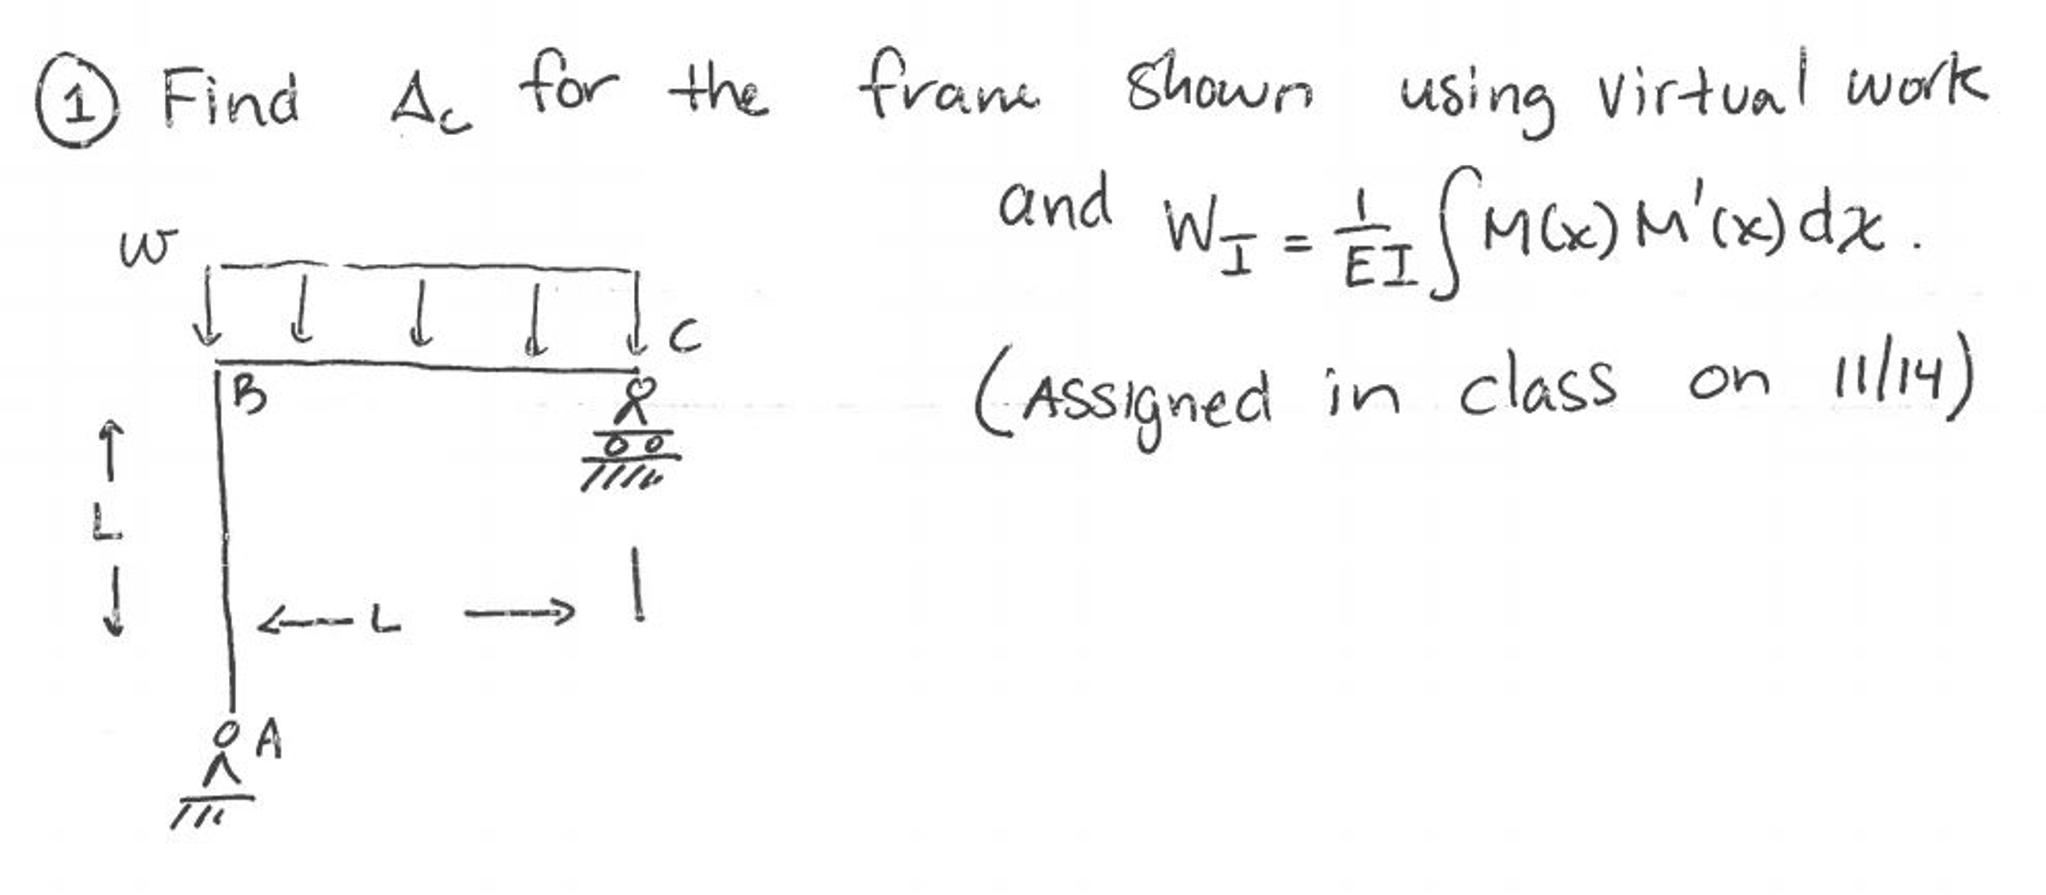 ① Find Δc for the frame shown using virtual work
and W_I = 1/EI ∫ M(x) M'(x) dx.
(Assigned in class on 11/14)
w
C
B
L
L
A